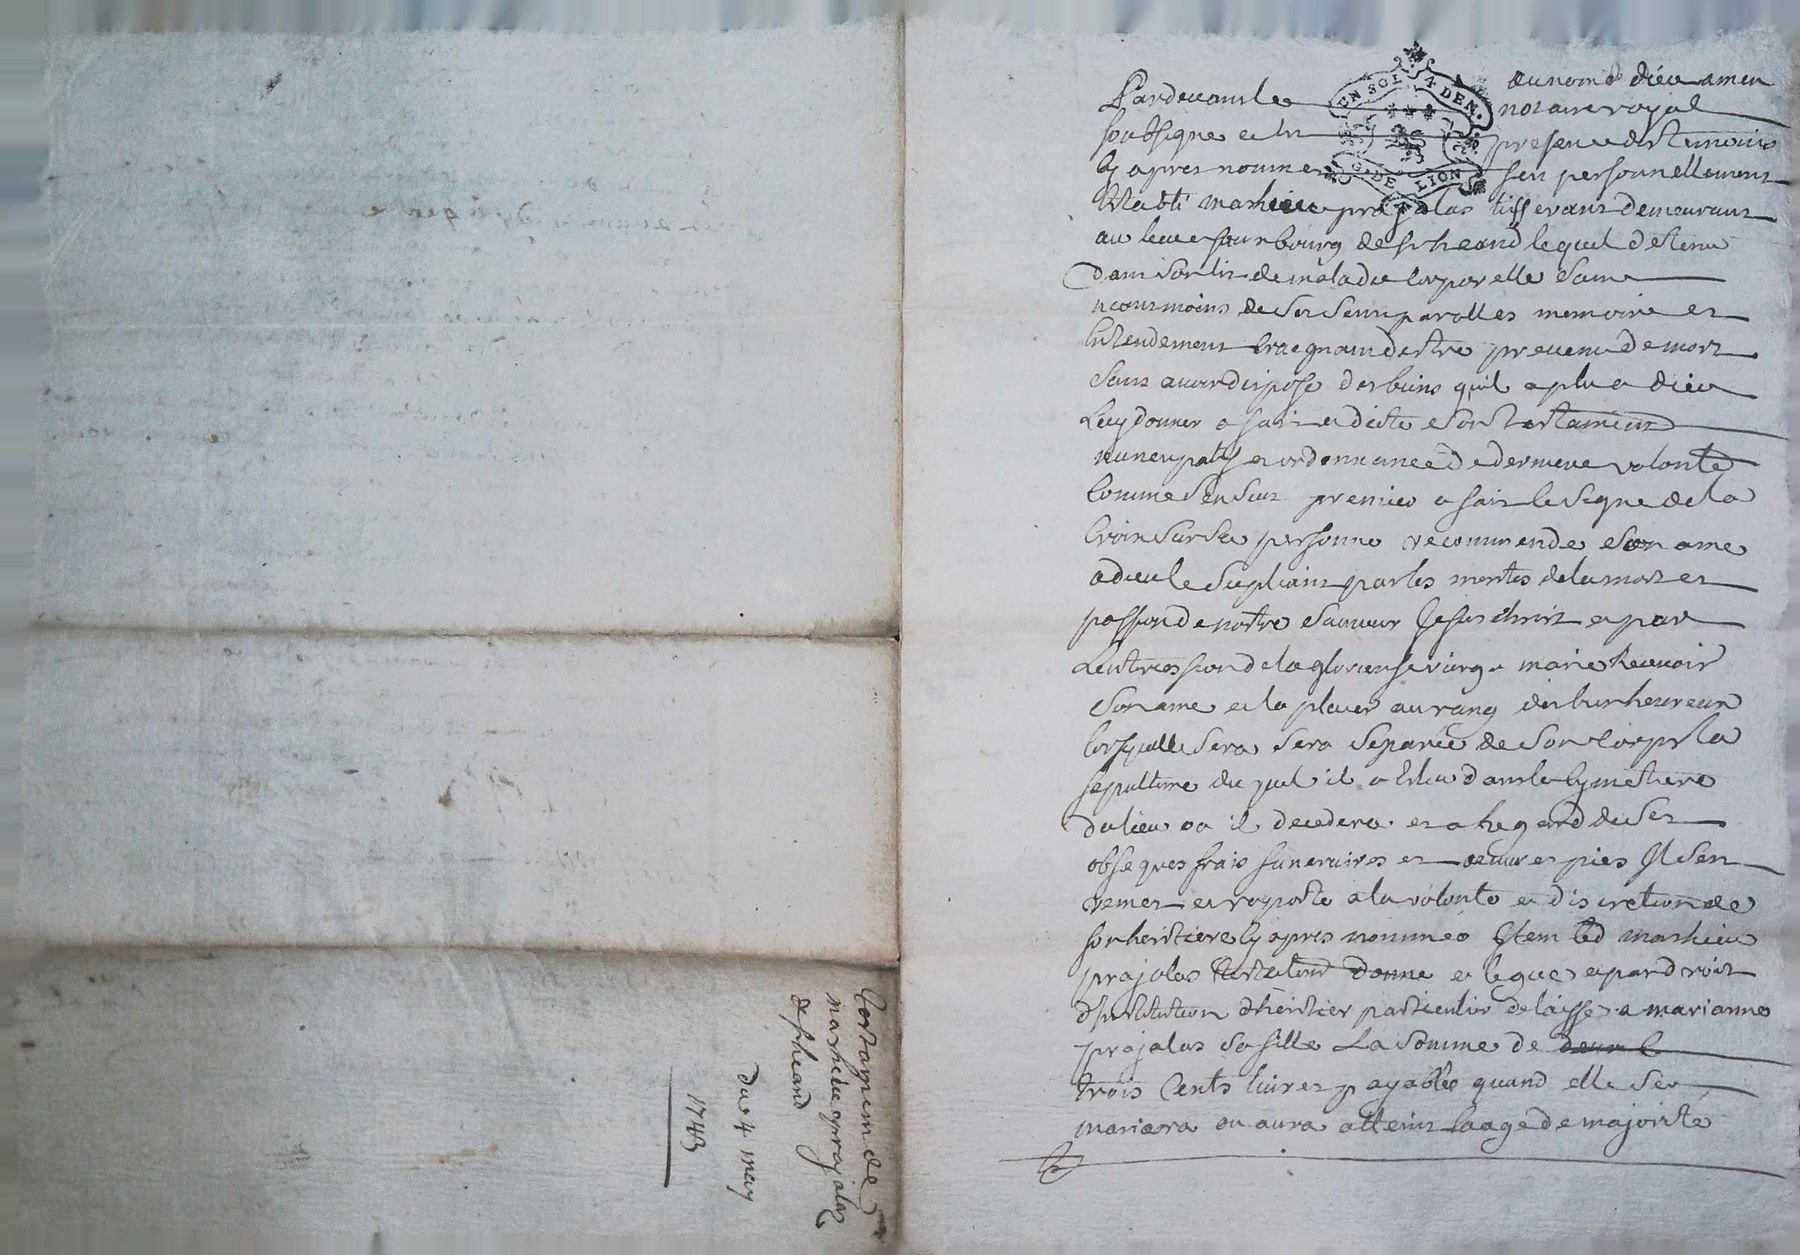 Testament de
mathieu prajalas
de st heand
du 4 may
1743
UN SOL 4 DEN.
G. DE LION
au nom de dieu amen
Pardevant le notaire royal
soubsigne et en presence des temoins
cy apres nommes feu personnellement
estably mathieu prajalas tisserant demeurant
au fourbourg de st heand lequel detenu
dans son lit de maladie corporelle sain
neantmoins de ses sens parolles memoire et
entendement craegnant destre prevenu de mort
sans avoir dispose des biens quil a plu a dieu
luy donner a fait et dicte son testament
nuncupatif et ordonnance de derniere volonte
comme sensuit premier a fait le signe de la
croix sur sa personne recommende son ame
a dieu le supliant par les merites de la mort et
passion de notre sauveur Jesus christ et par
lentrecession de la glorieuse vierge marie recevoir
son ame et la placer au rang des bienheureux
lorsquelle sera sera separée de son corps la
sepulture du quel il a eslu dans le cymetiere
du lieu ou il decedera et a legard de ses
obseques frais funeraires et oeuvres pies Il sen
remet et raporte a la volonte et discretion de
son heritiere cy apres nommée Item led mathieu
prajalas testateur donne et legue et par droit
dinstitution dheritier particulier delaisse a marianne
prajalas sa fille La somme de
trois Cents livres payable quand elle se
mariera ou aura atteint laage de majorité